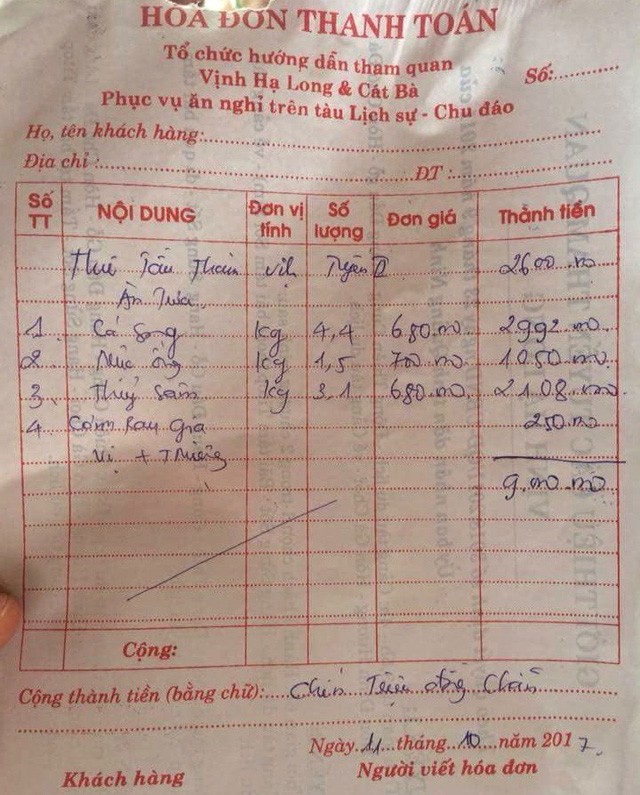 HÓA ĐƠN THANH TOÁN
Tổ chức hướng dẫn tham quan
Vịnh Hạ Long & Cát Bà
Số:
Phục vụ ăn nghỉ trên tàu Lịch sự - Chu đáo
Họ, tên khách hàng:
Địa chỉ : ĐT :
Số TT NỘI DUNG Đơn vị tính Số lượng Đơn giá Thành tiền
Thuê Tầu Thăm Vịnh Tuyến II 2600.000
Ăn Trưa
1 Cá Song kg 4,4 680.000 2992.000
2 Mực ống kg 1,5 700.000 1050.000
3 Thuỷ Sâm kg 3.1 680.000 2108.000
4 Cơm Rau Gia 250.000
Vị +
9.000.000
Cộng:
Cộng thành tiền (bằng chữ): Chín Triệu đồng Chẵn
Ngày 11 tháng 10 năm 2017
Khách hàng Người viết hóa đơn